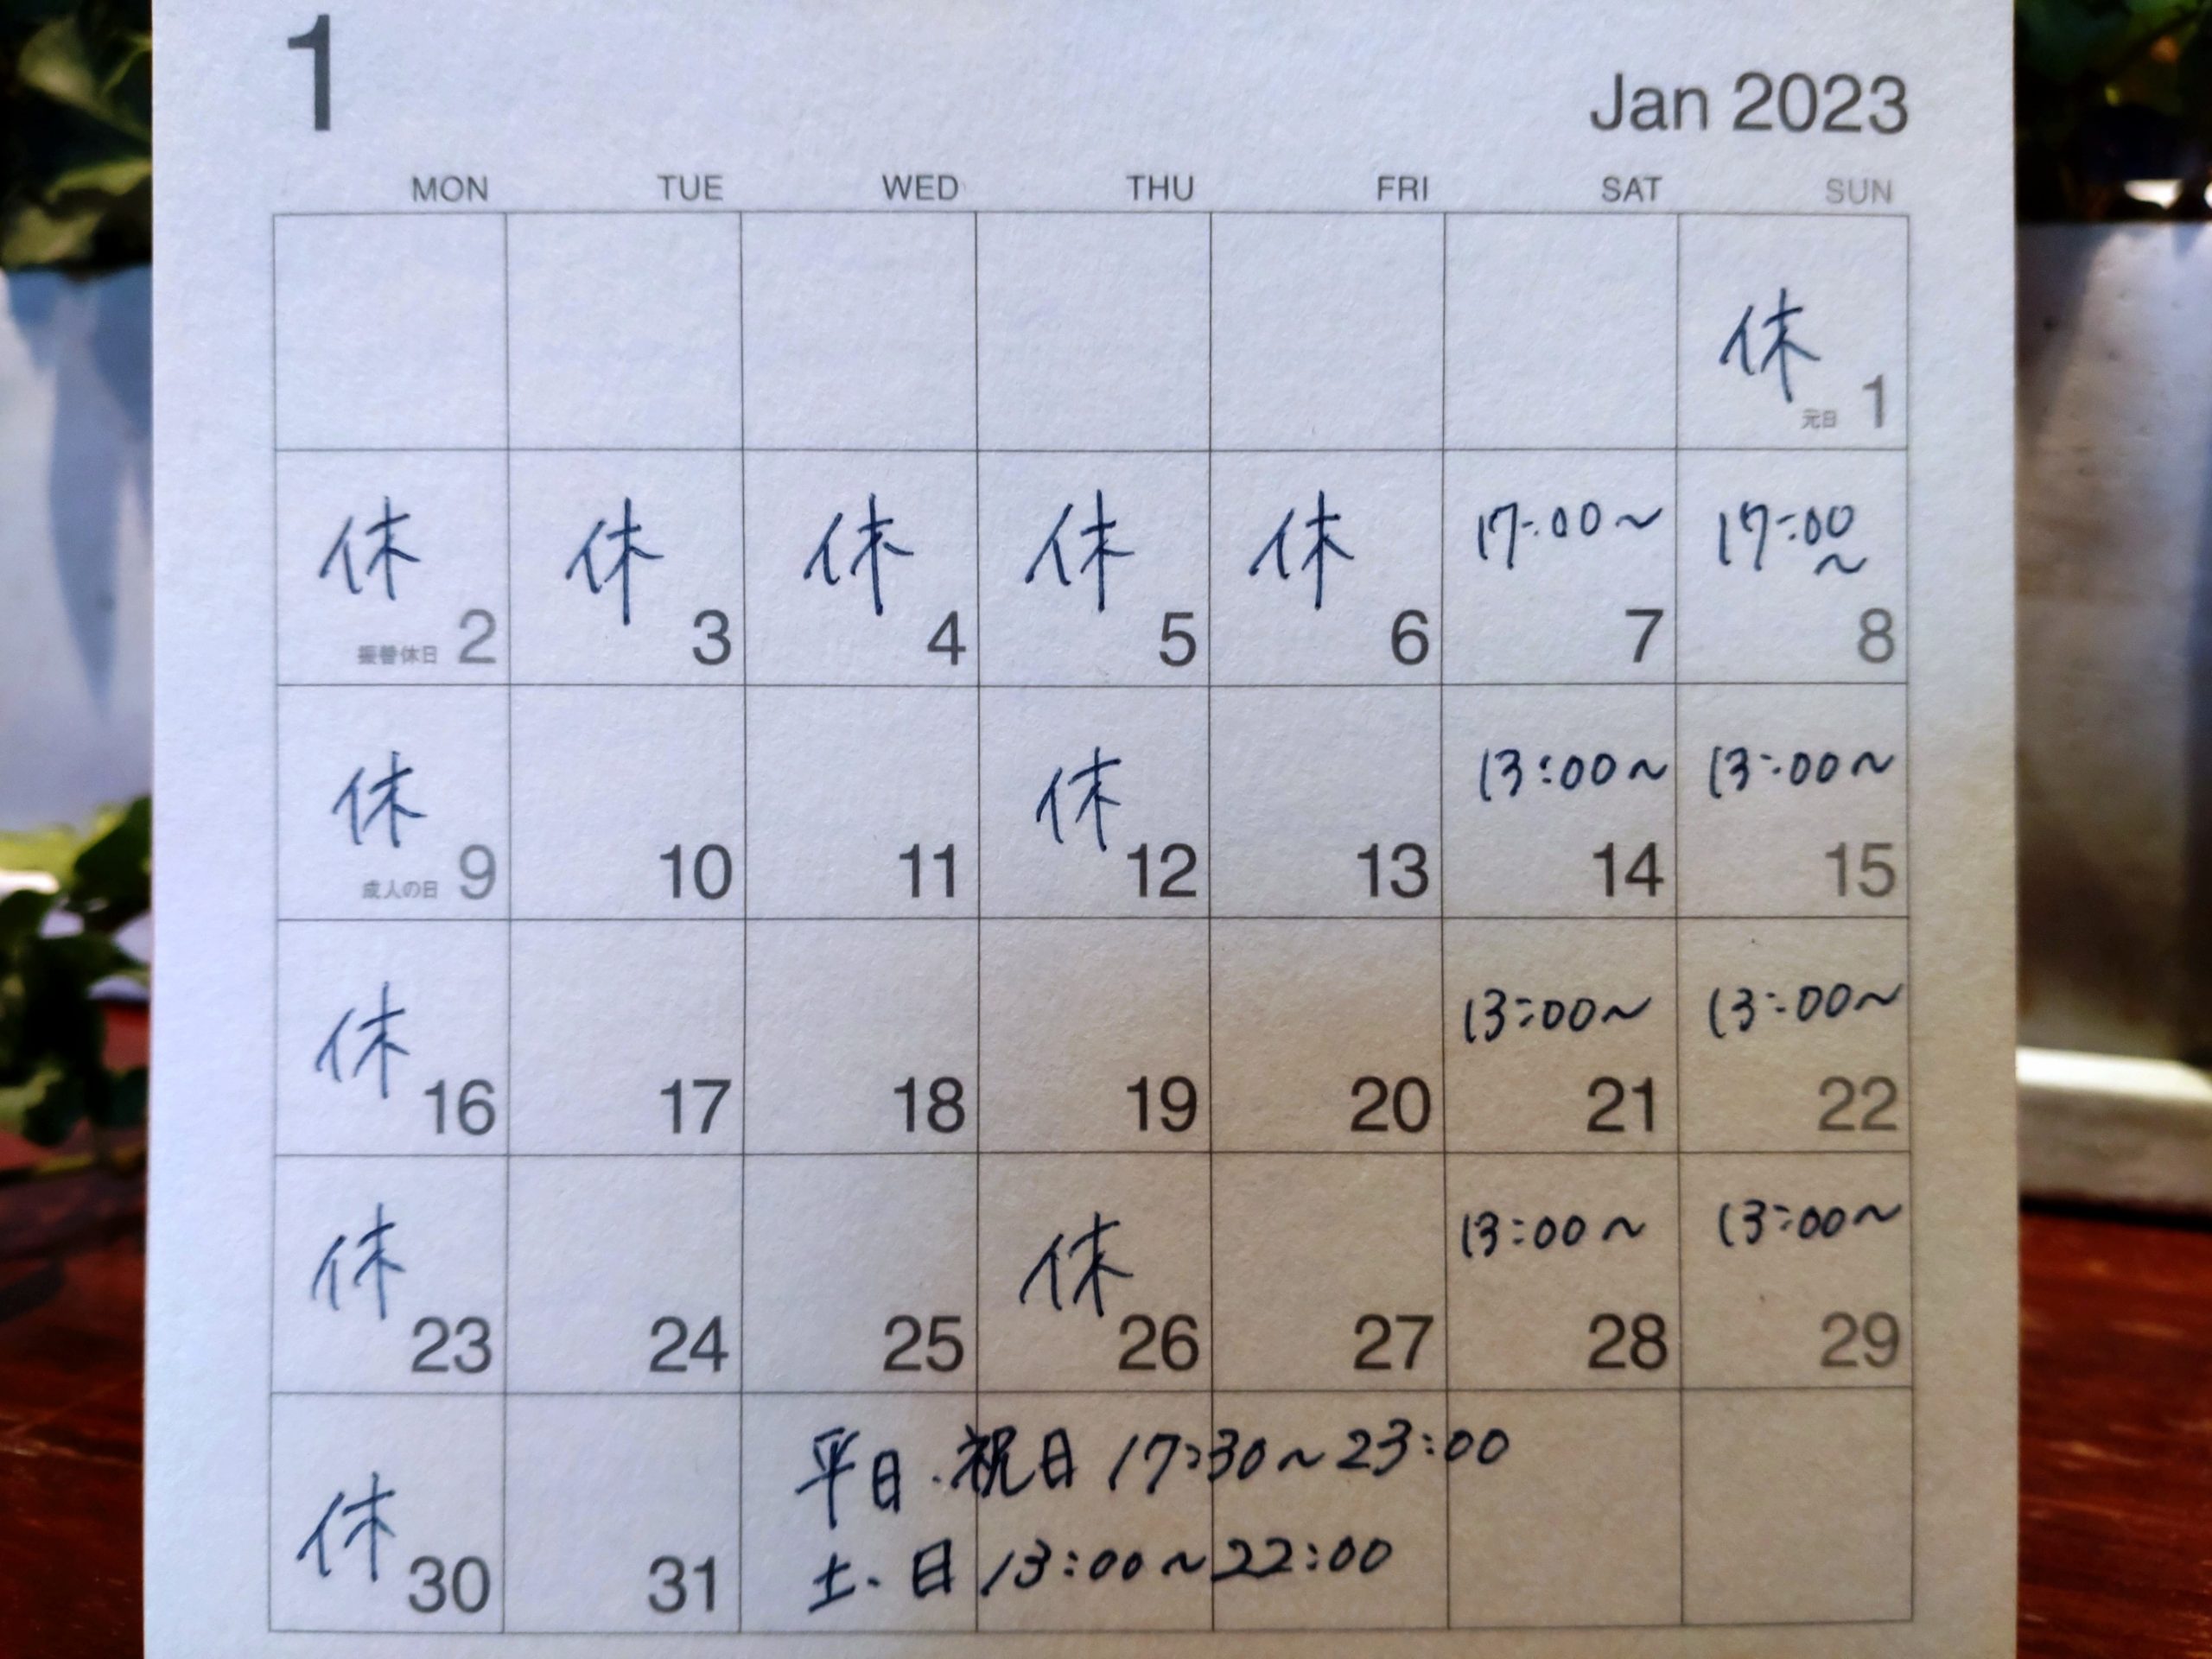 1
Jan 2023
MON TUE WED THU FRI SAT SUN
休
元日 1
休 休 休 休 休 17:00~ 17:00
~
振替休日 2 3 4 5 6 7 8
休 休 13:00~ 13:00~
成人の日 9 10 11 12 13 14 15
休 13:00~ 13:00~
16 17 18 19 20 21 22
休 休 13:00~ 13:00~
23 24 25 26 27 28 29
平日・祝日 17:30~23:00
休 土・日 13:00~22:00
30 31